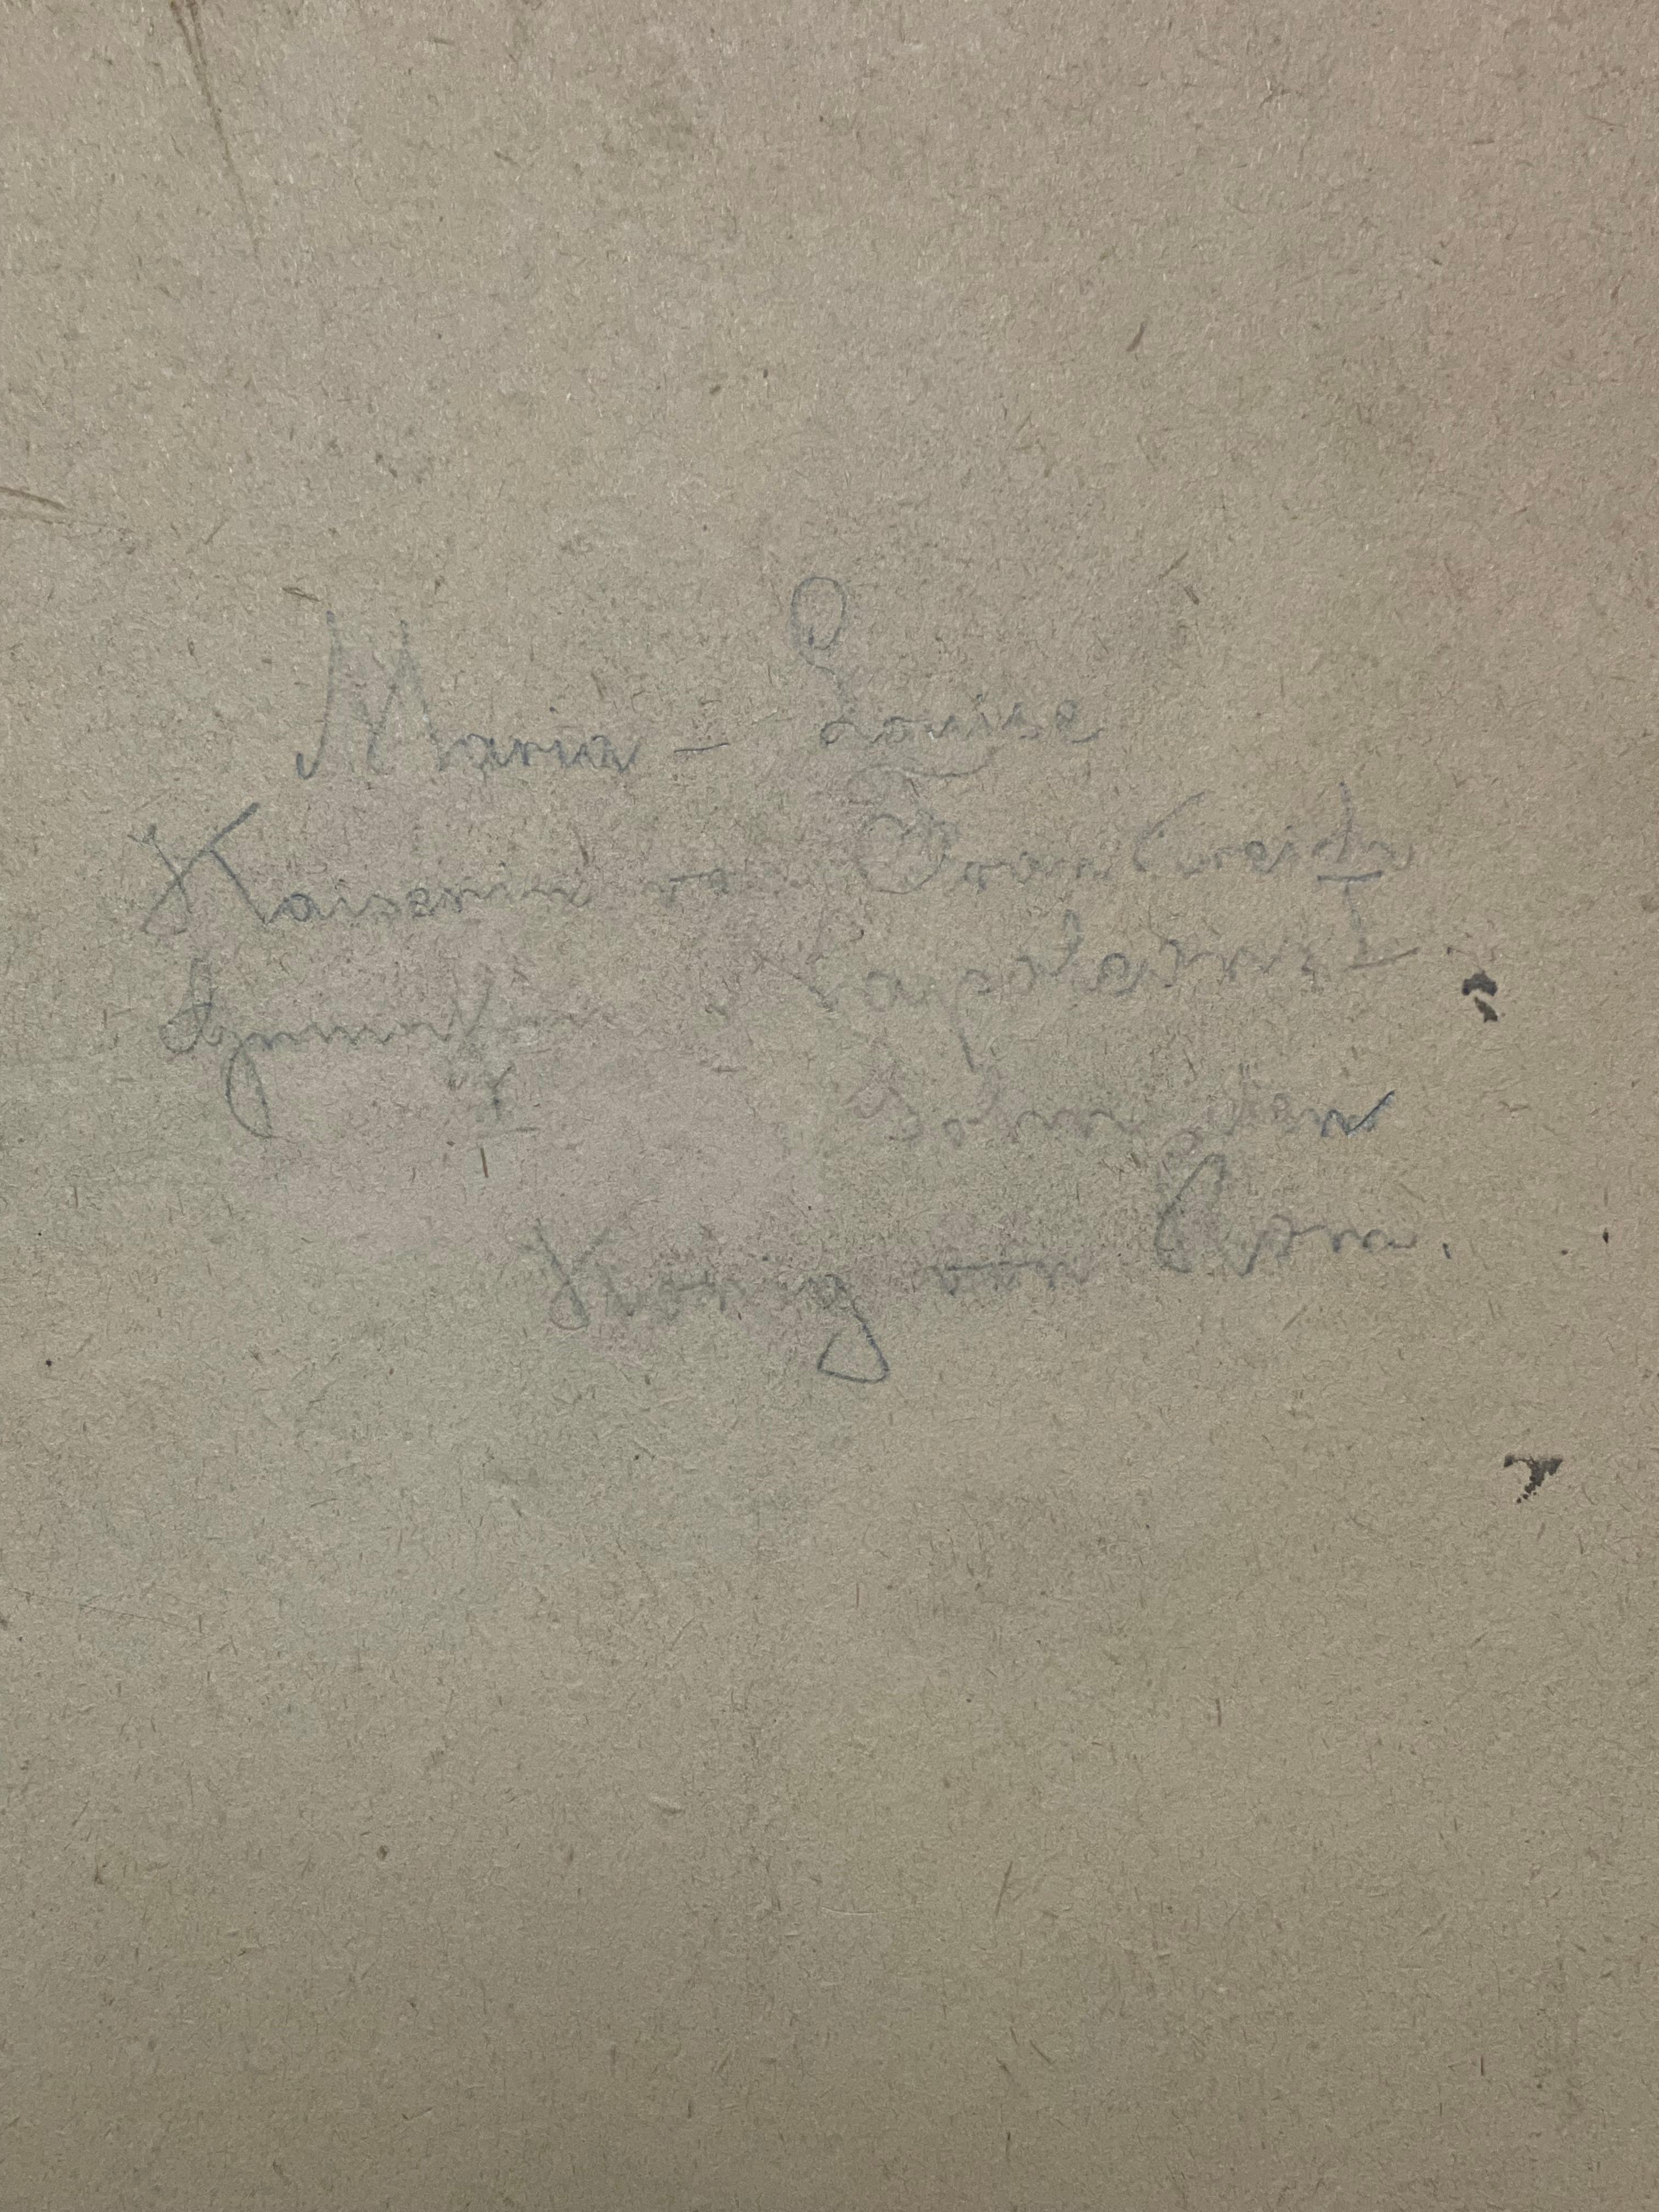 Maria - Louise
Kaiserin von Frankreich
Gemahlin Napoleons I.
Sohn den
König von Rom.